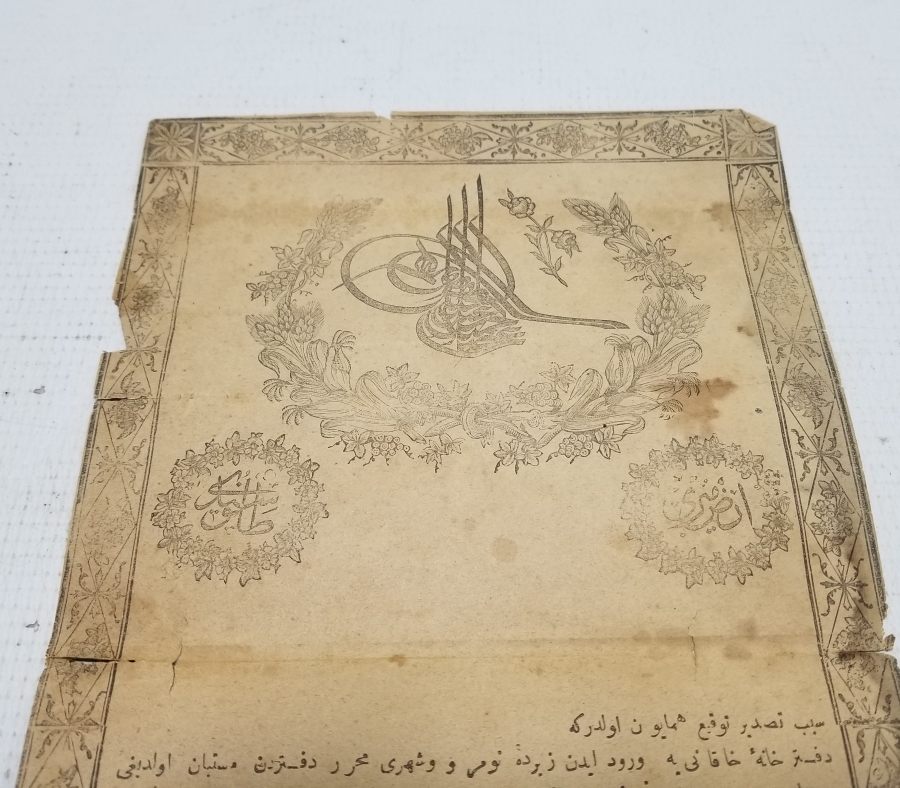 ارض میری
طاپو سندی
سبب تصدیر توقیع همایون اولدرکه
دفتر خانۀ خاقانی یه ورود ایدن زیرده نومر و وشهری محرر دفتردن مستبان اولدیغی